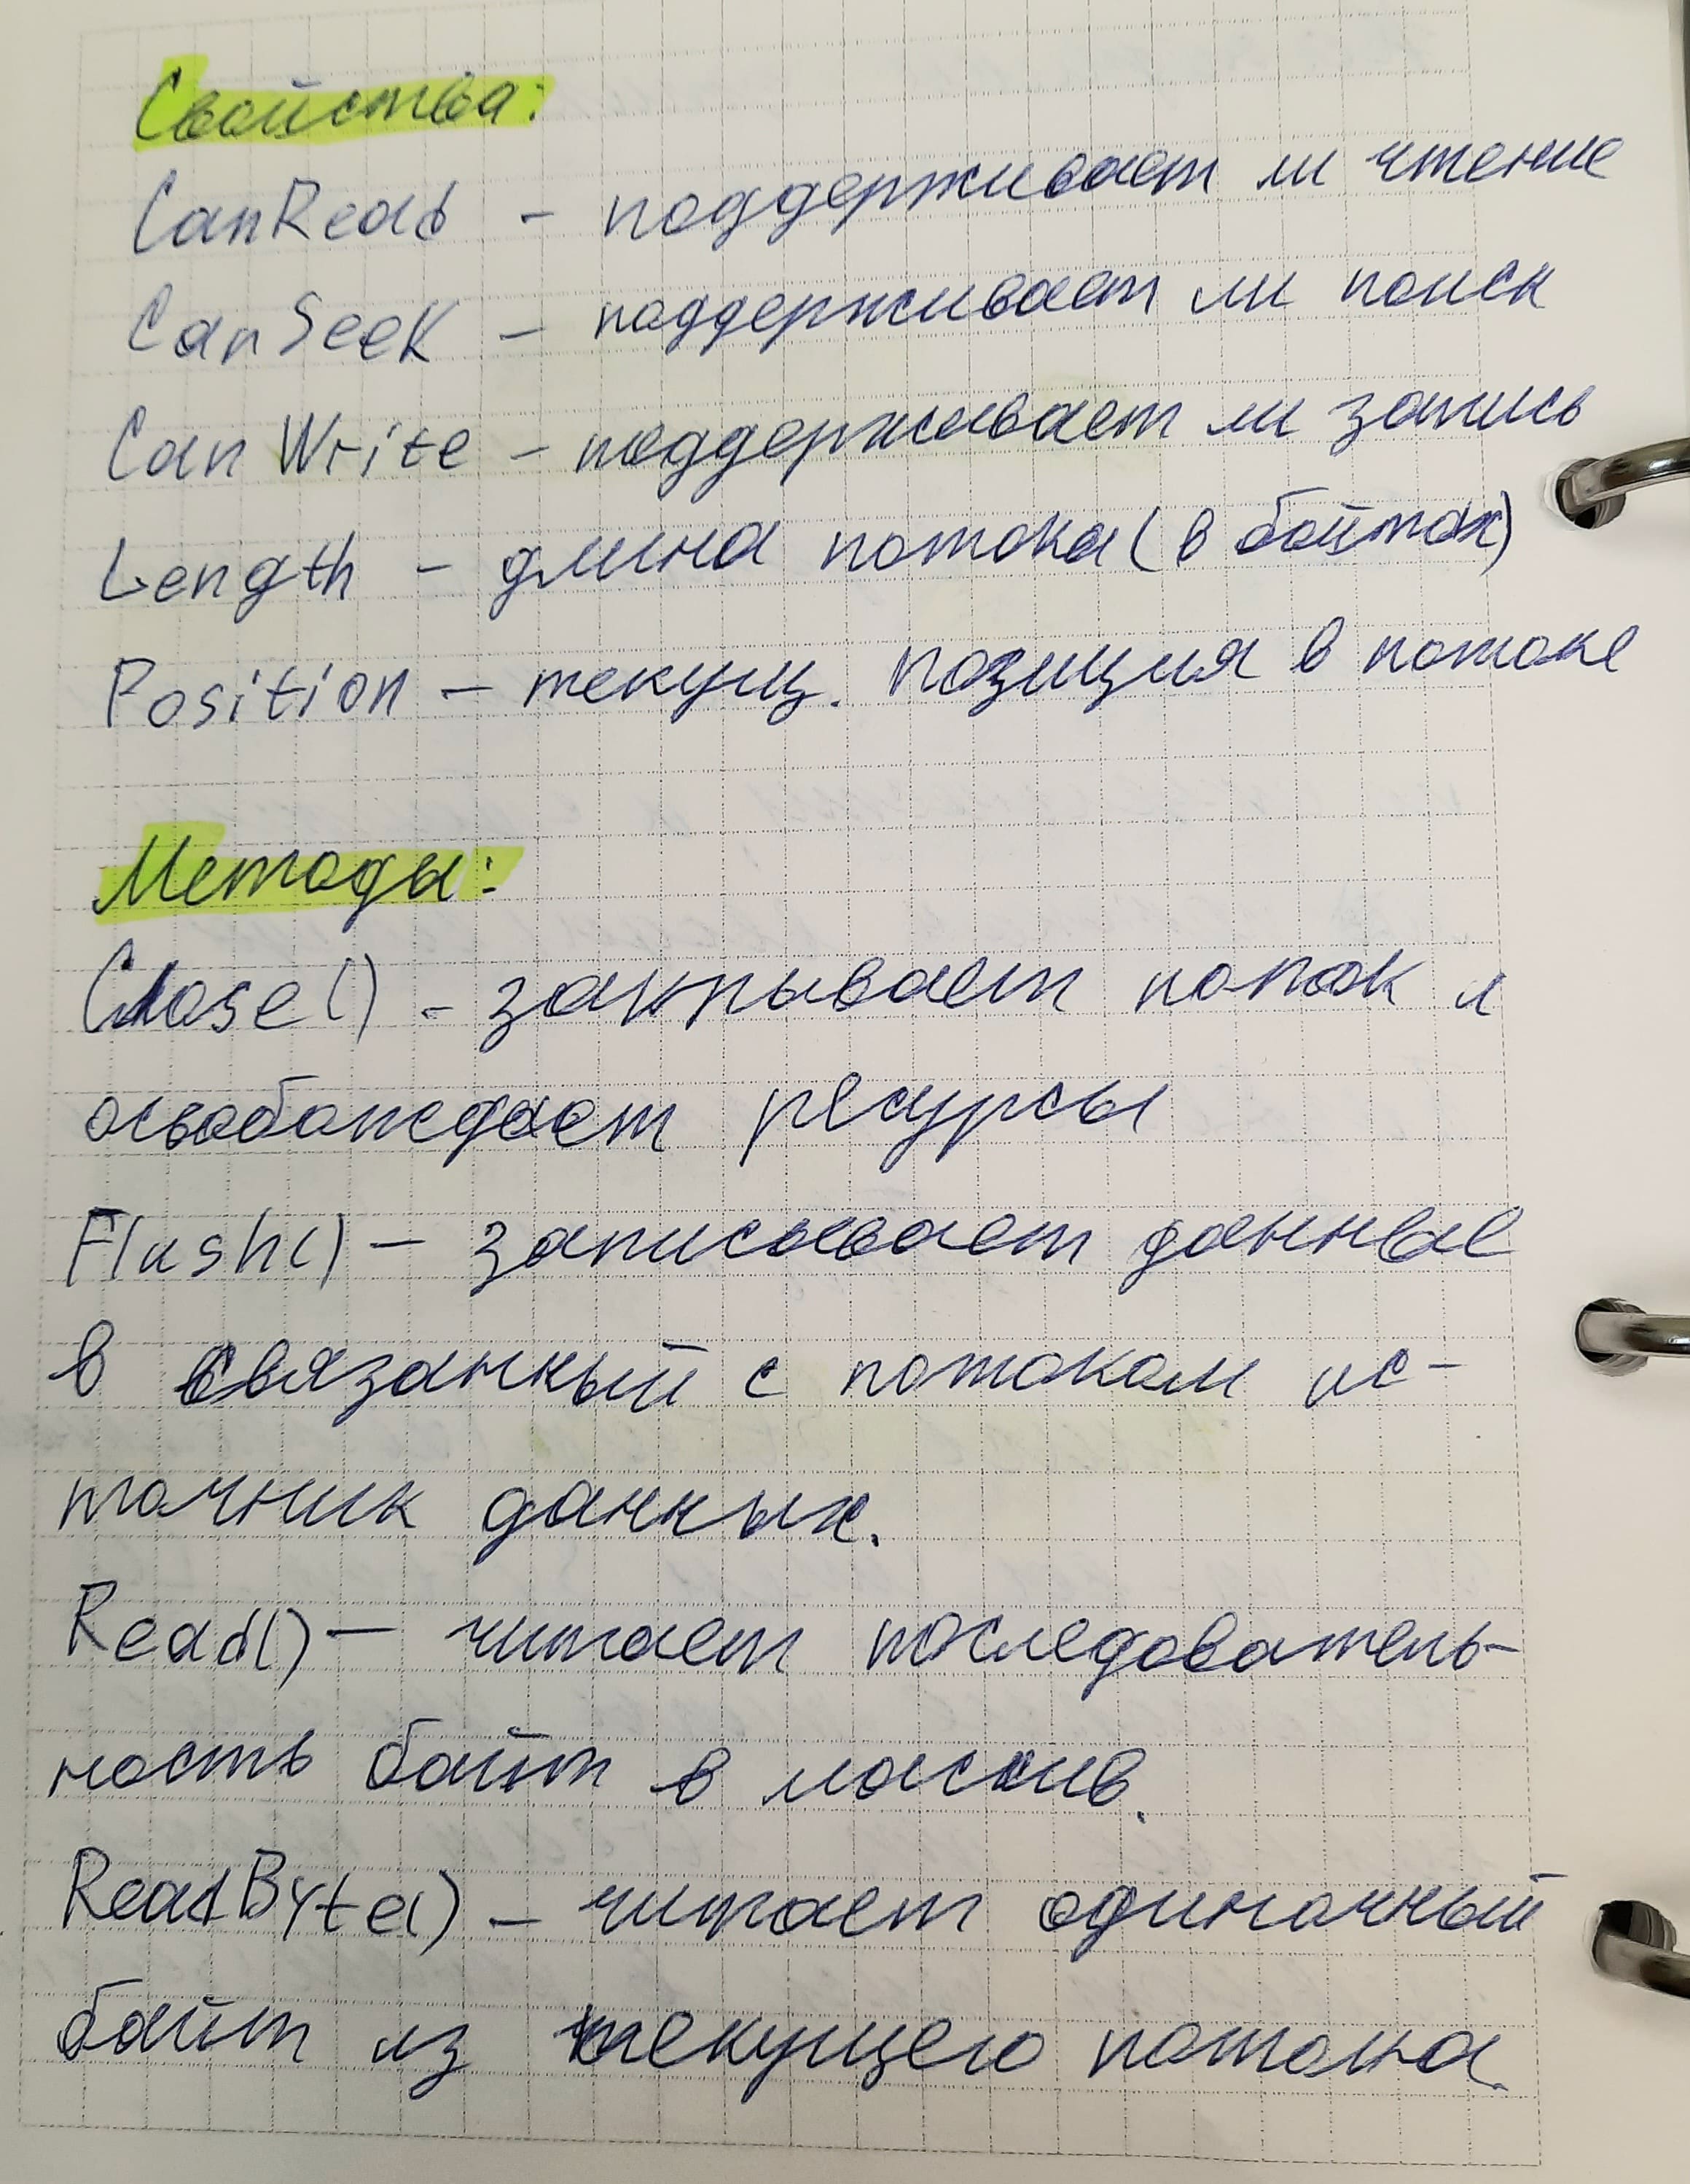 Свойства:
CanRead – поддерживает ли чтение
CanSeek – поддерживает ли поиск
CanWrite – поддерживает ли запись
Length – длина потока (в байтах)
Position – текущ. позиция в потоке
Методы:
Close() – закрывает поток и
освобождает ресурсы
Flush() – записывает данные
в связанный с потоком ис-
точник данных.
Read() – читает последователь-
ность байт в массив.
ReadByte() – читает одиночный
байт из текущего потока.